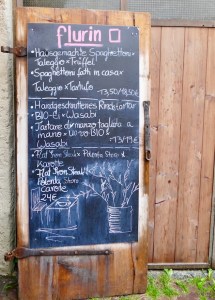 flurin
• Hausgemachte Spaghettoni
Taleggio + Trüffel
• Spaghettoni fatti in casa
Taleggio + Tartufo
13,50/18,50€
• Handgeschnittenes Rindstartar
BIO-Ei + Wasabi
• Tartare di manzo tagliata a
mano + Uovo BIO +
Wasabi
• Flat Iron Steak + Polenta
Karotte
• Flat Iron Steak
Polenta
Carote
24€